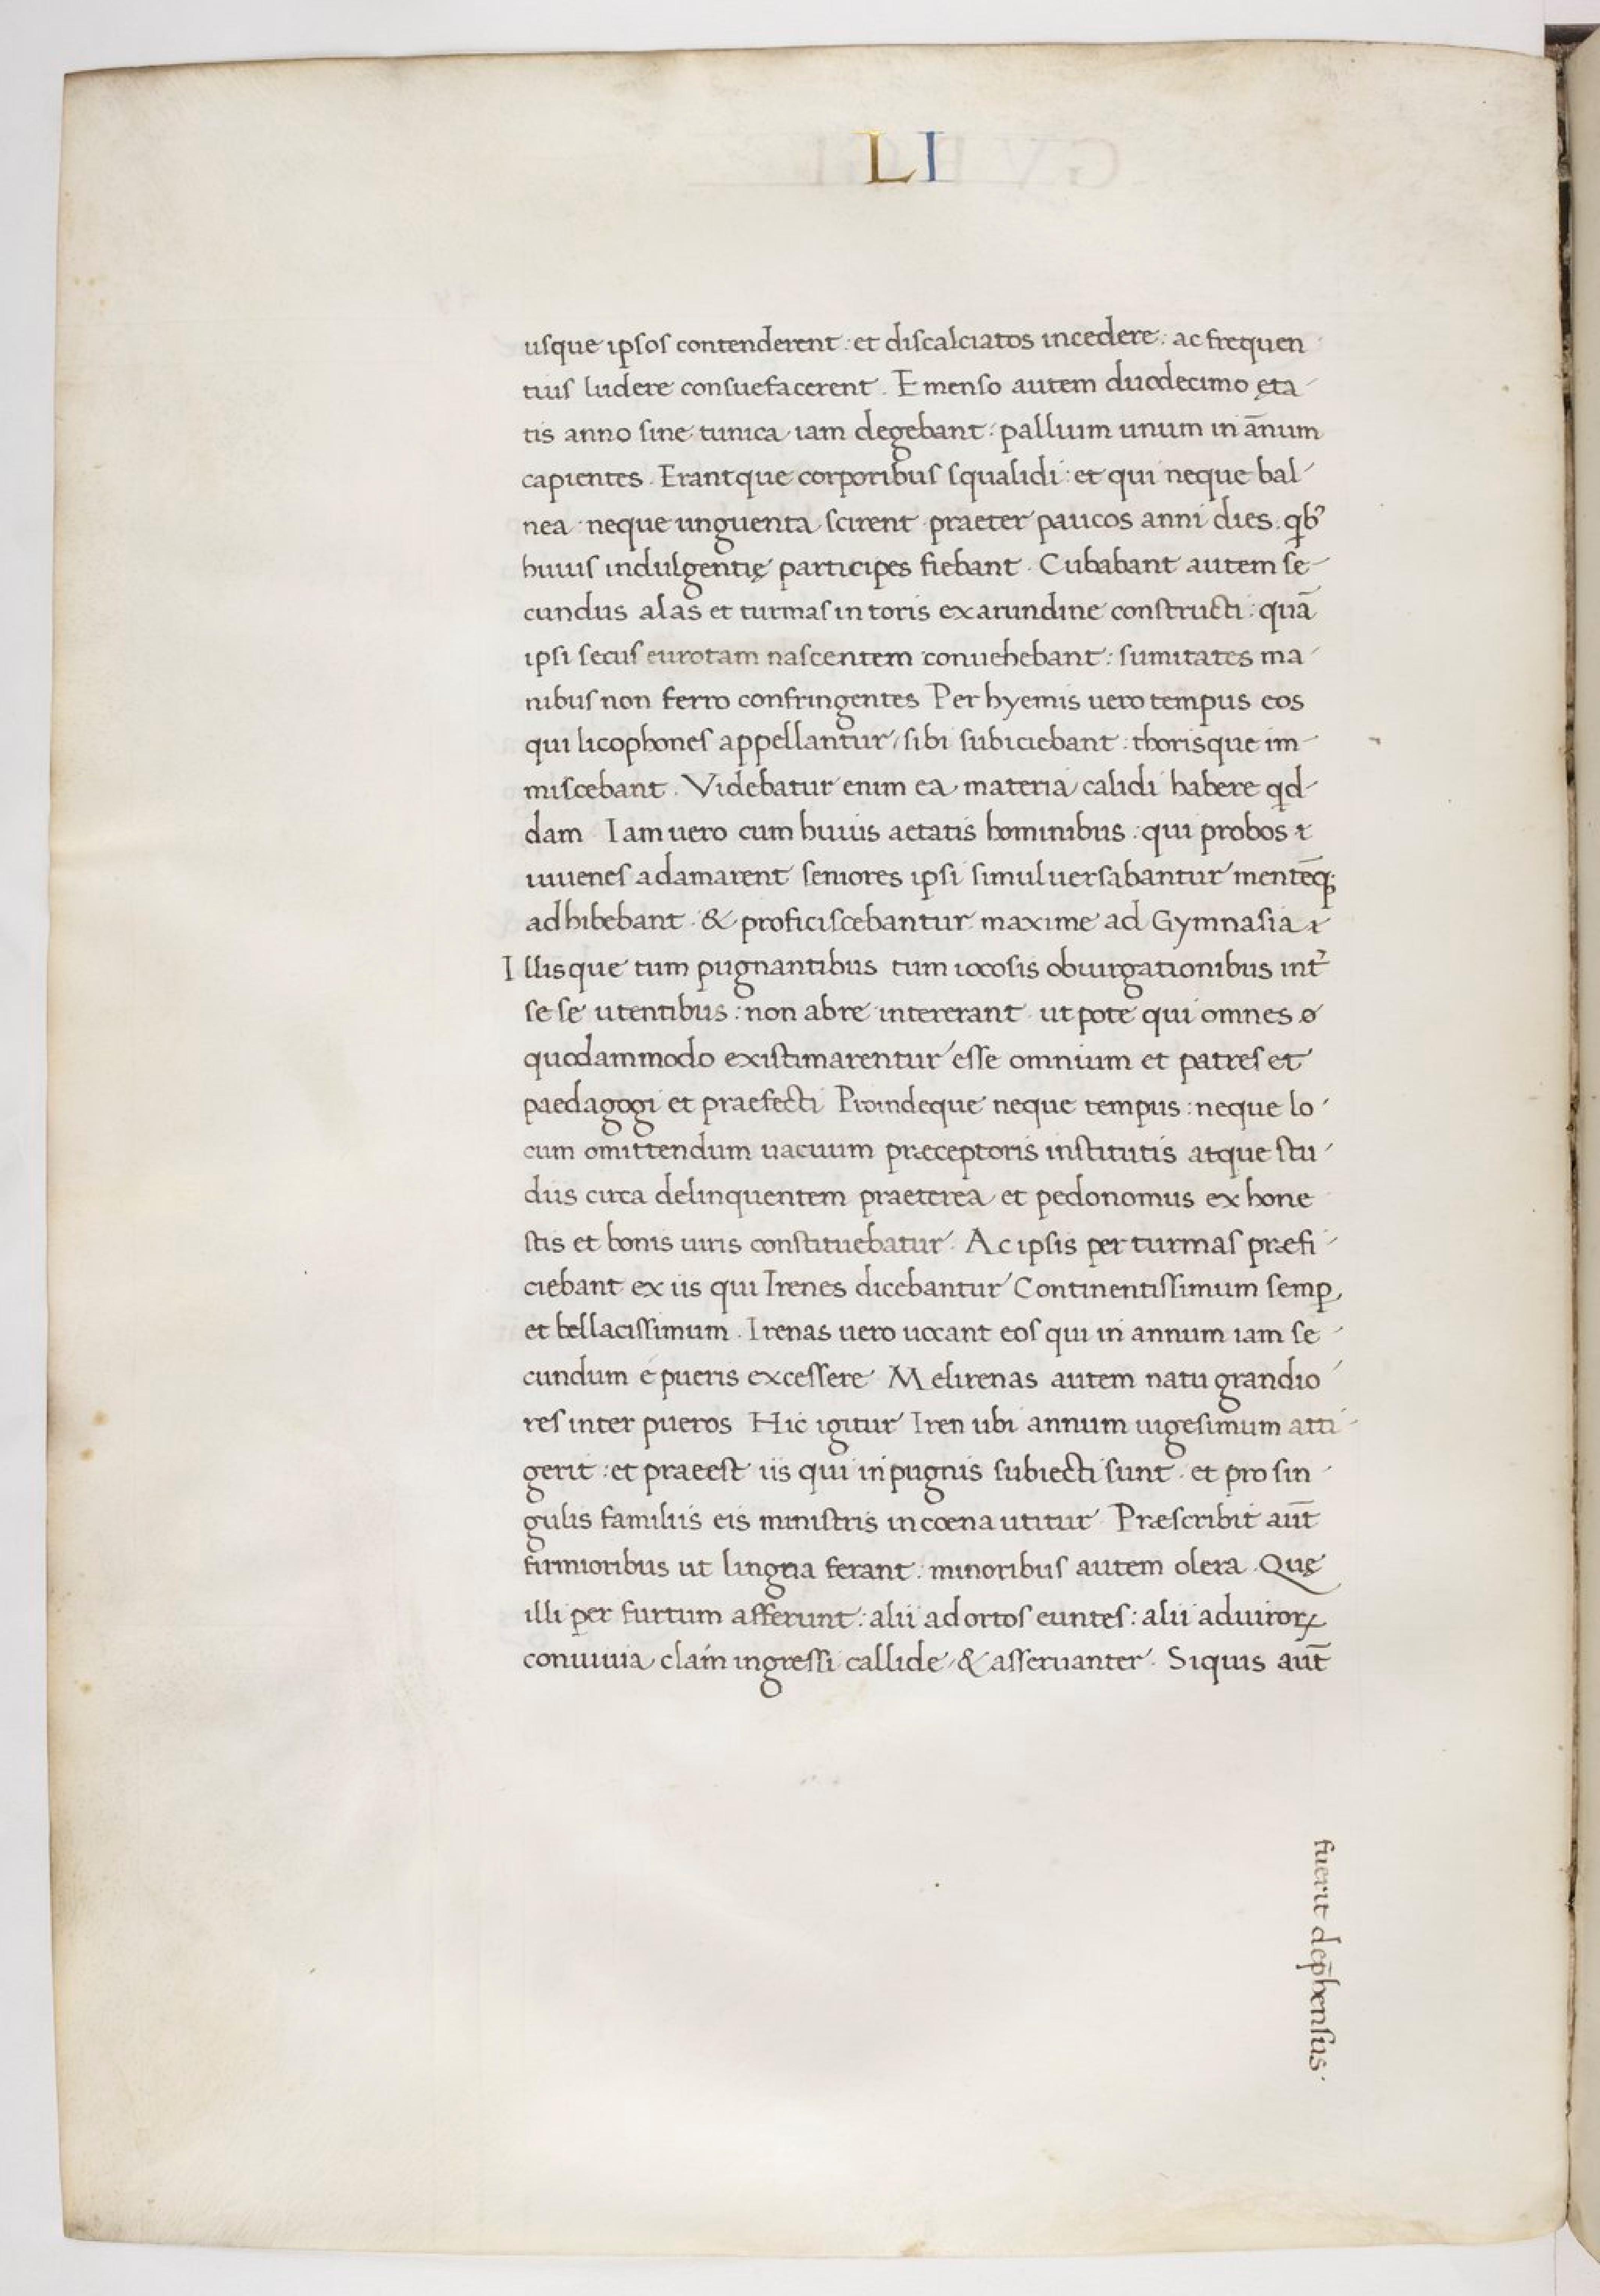 LI
usque ipsos contenderent : et discalciatos incedere : ac frequen
tius ludere consuefacerent . Emenso autem duodecimo ęta-
tis anno sine tunica iam degebant : pallium unum in ānum
capientes . Erantque corporibus squalidi : et qui neque bal-
nea neque unguenta scirent praeter paucos anni dies . qb'
huius indulgentię participes fiebant . Cubabant autem se-
cundus alas et turmas in toris ex arundine constructi : quā
ipsi secus eurotam nascentem conuehebant : sumitates ma-
nibus non ferro confringentes Per hyemis uero tempus eos
qui licophones appellantur / sibi subiciebant : thorisque im-
miscebant . Videbatur enim ea materia calidi habere qd-
dam . Iam uero cum huius aetatis hominibus : qui probos &
iuuenes adamarent seniores ipsi simul uersabantur mentēq;
adhibebant . & proficiscebantur maxime ad Gymnasia &
Illisque tum pugnantibus tum iocosis obiurgationibus int̄
se se utentibus : non abre intererant ut pote qui omnes ø
quodammodo existimarentur esse omnium et patres et
paedagogi et praefecti Proindeque neque tempus : neque lo-
cum omittendum uacuum præceptoris institutis atque stu-
diis circa delinquentem praeterea et pedonomus ex hone
stis et bonis uiris constituebatur . Ac ipsis per turmas præfi-
ciebant ex iis qui Irenes dicebantur Continentissimum semꝑ
et bellacissimum . Irenas uero uocant eos qui in annum iam se-
cundum e pueris excessere Melirenas autem natu grandio-
res inter pueros Hic igitur Iren ubi annum uigesimum atti-
gerit : et praeest iis qui in pugnis subiecti sunt . et pro sin-
gulis familiis eis ministris in coena utitur Præscribit aut̄
firmioribus ut lingna ferant : minoribus autem olera . Quę
illi per furtum afferunt : alii ad ortos euntes : alii ad uiroꝝ
conuiuia clam ingressi callide / & asseruanter . Siquis aut̄
fuerit dep̄hensus .